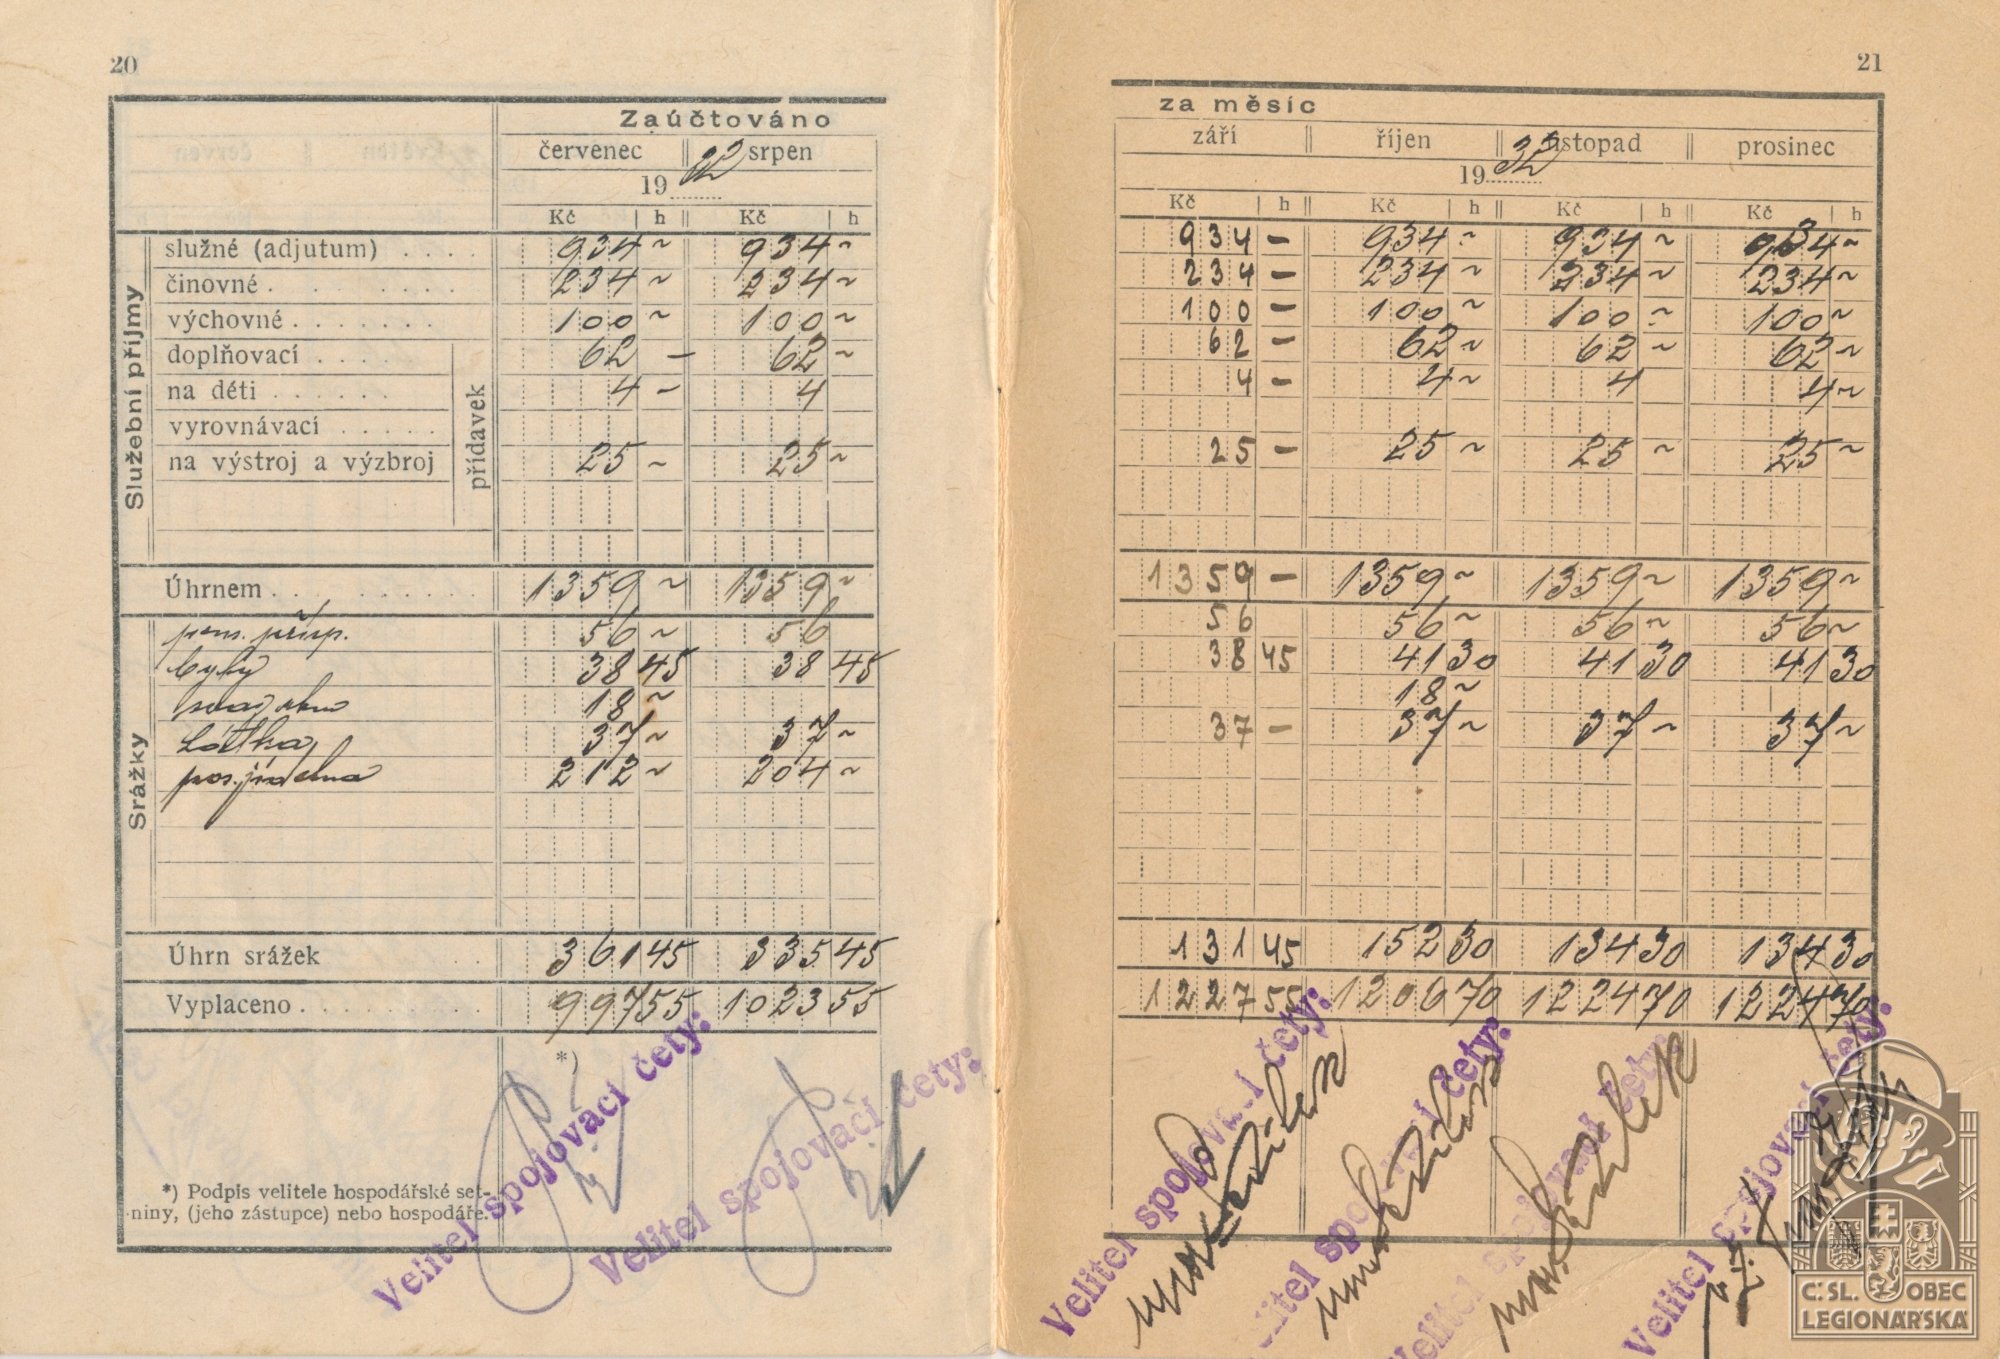 20
Zaúčtováno
červenec || srpen
1932
Kč h Kč h
Služební příjmy
služné (adjutum) . . . . 934 ~ 934 ~
činovné . . . . . . . . . 234 ~ 234 ~
výchovné . . . . . . . 100 ~ 100 ~
doplňovací . . . . 62 – 62 ~
na děti . . . . . . 4 – 4
vyrovnávací . . . . .
na výstroj a výzbroj 25 ~ 25 ~
přídavek
Úhrnem . . . . . . . . . . 1359 ~ 1359 ~
Srážky
pens. přísp. 56 ~ 56
byty 38 45 38 45
18 ~
Látka 37 ~ 37 ~
212 ~ 204 ~
Úhrn srážek . . 361 45 335 45
Vyplaceno . . . . . . . . . 997 55 1023 55
*)
Velitel spojovací čety:
Velitel spojovací čety:
*) Podpis velitele hospodářské set-
niny, (jeho zástupce) nebo hospodáře.
21
za měsíc
září || říjen || listopad || prosinec
1932
Kč h Kč h Kč h Kč h
934 – 934 ~ 934 ~ 934 ~
234 – 234 ~ 234 ~ 234 ~
100 – 100 ~ 100 ~ 100 ~
62 – 62 ~ 62 ~ 62 ~
4 – 4 ~ 4 4 ~
25 – 25 ~ 25 ~ 25 ~
1359 – 1359 ~ 1359 ~ 1359 ~
56 56 ~ 56 ~ 56 ~
38 45 41 30 41 30 41 30
18 ~
37 – 37 ~ 37 ~ 37 ~
131 45 152 30 134 30 134 30
1227 55 1206 70 1224 70 1224 70
Velitel spojovací čety:
Velitel spojovací čety:
Velitel spojovací čety:
Velitel spojovací čety:
Č. SL. OBEC
LEGIONÁŘSKÁ